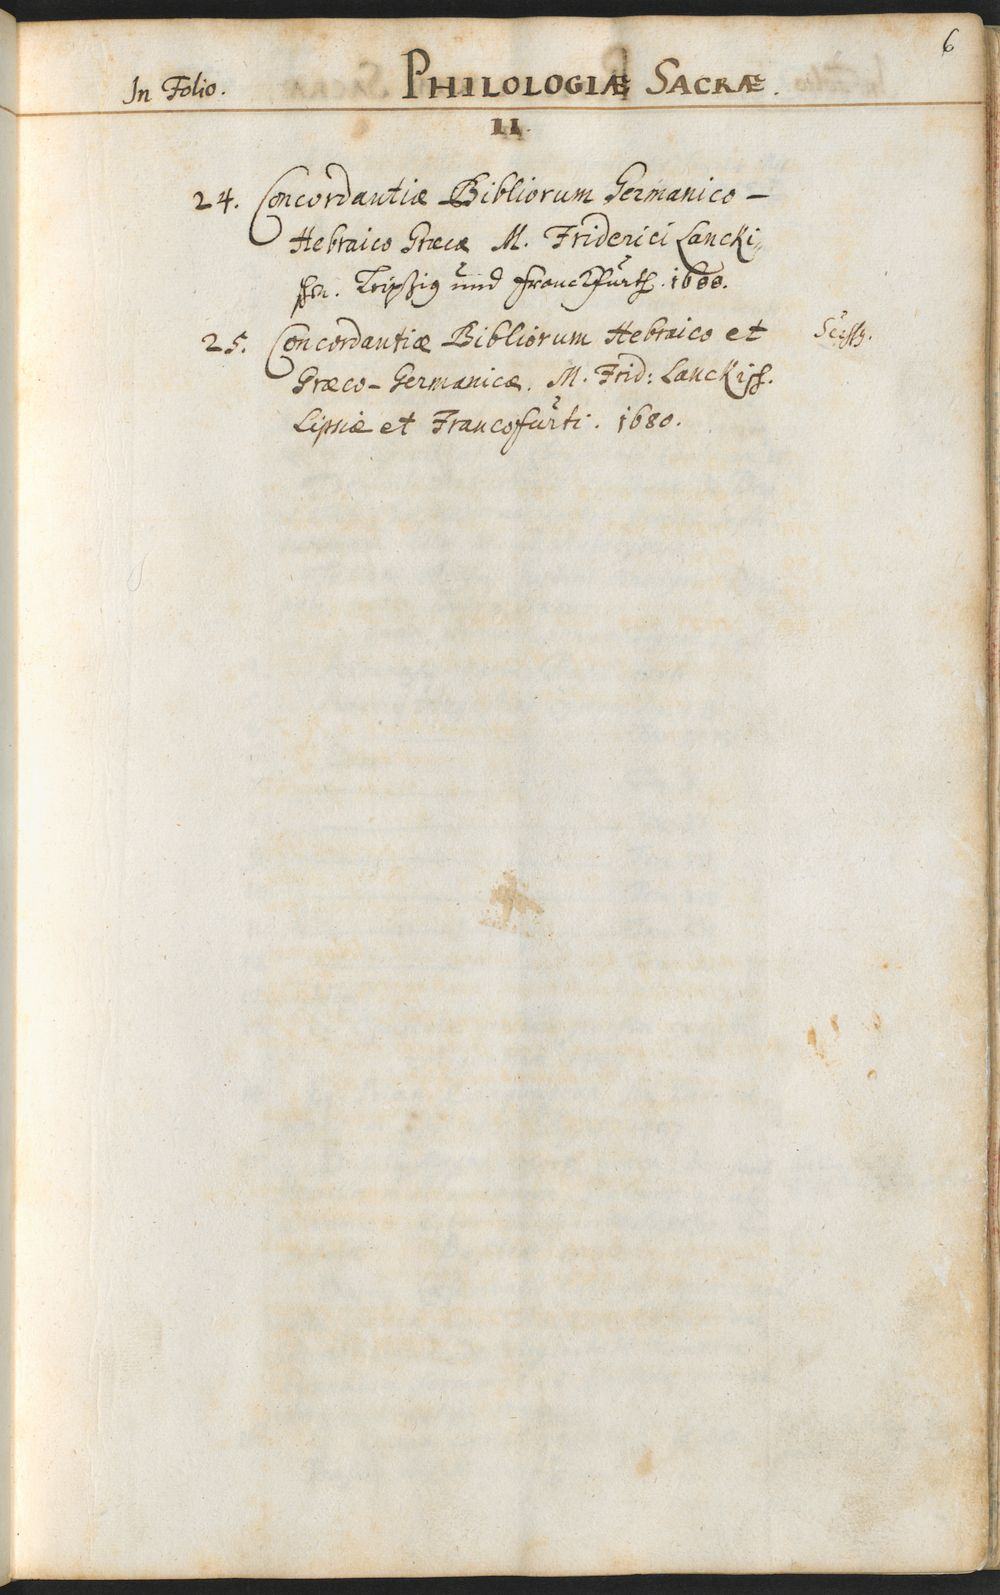 6
In Folio. PHILOLOGIÆ SACRÆ.
II.
24. Concordantiæ Bibliorum Germanico-
Hebraico Græcæ M. Friderici Lancki,,
schen. Leipzig und Franckfurth. 1688.
25. Concordantiæ Bibliorum Hebraico et
Græco-Germanicæ. M. Frid: Lanckisch.
Lipsiæ et Francofurti. 1680.